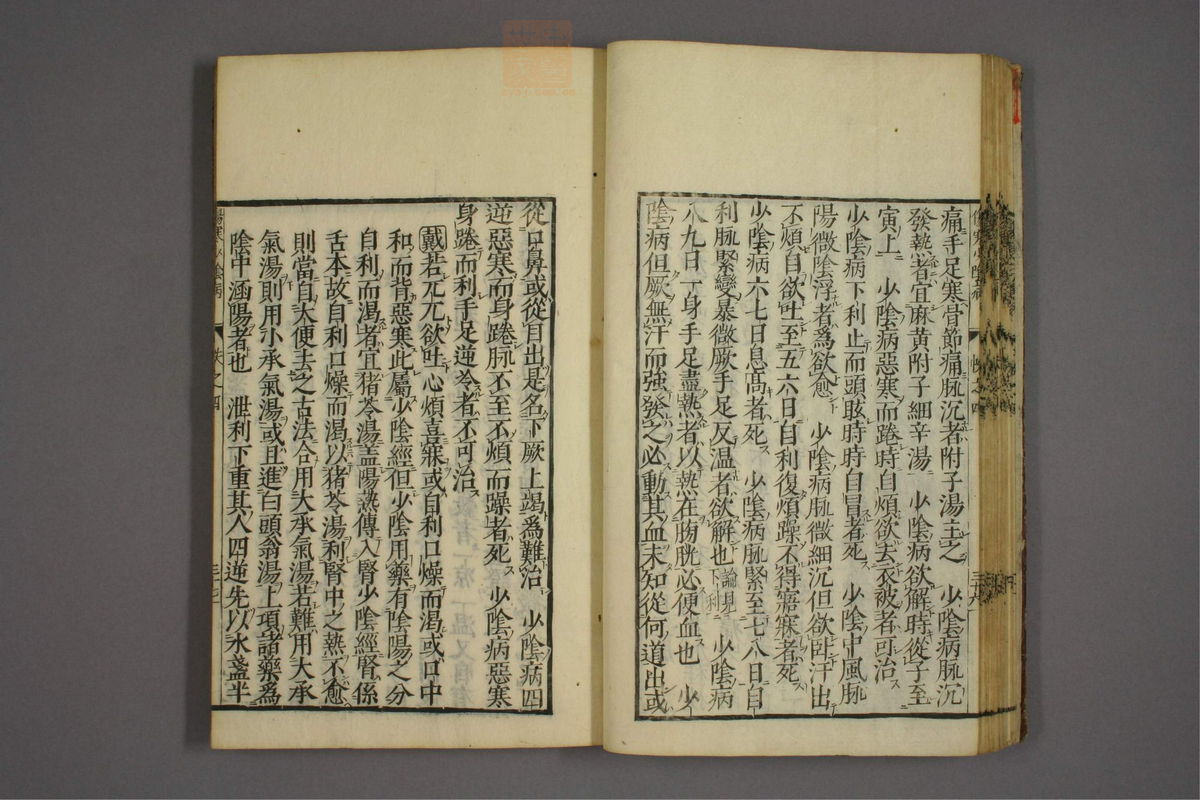 痛手足寒骨節痛脉沉者附子湯主之　少陰病脉沉
發熱者宜麻黄附子細辛湯　少陰病欲解時從子至
寅上　少陰病惡寒而踡時自煩欲去衣被者可治
少陰病下利止而頭眩時時自冒者死　少陰中風脉
陽微陰浮者爲欲愈　少陰病脉微細沉但欲卧汗出
不煩自欲吐至五六日自利復煩躁不得寤寐者死
少陰病六七日息髙者死　少陰病脉緊至七八日自
利脉緊變暴微厥手足反温者欲解也論見下利　少陰病
八九日一身手足盡熱者以熱在膀胱必便血也　少
陰病但厥無汗而強發之必動其血未知從何道出或
從口鼻或從目出是名下厥上竭爲難治　少陰病四
逆惡寒而身踡脉不至不煩而躁者死　少陰病惡寒
身踡而利手足逆冷者不可治
戴若兀兀欲吐心煩喜寐或自利口燥而渴或口中
和而背惡寒此屬少陰經但少陰用藥有陰陽之分
自利而渴者宜猪苓湯盖陽熱傳入腎少陰經腎係
舌本故自利口燥而渴以猪苓湯利腎中之熱不愈
則當自大便去之古法合用大承氣湯若難用大承
氣湯則用小承氣湯或且進白頭翁湯上項諸藥爲
陰中涵陽者也　泄利下重其人四逆先以水盞半
傷寒少陰病　帙之四　三十七